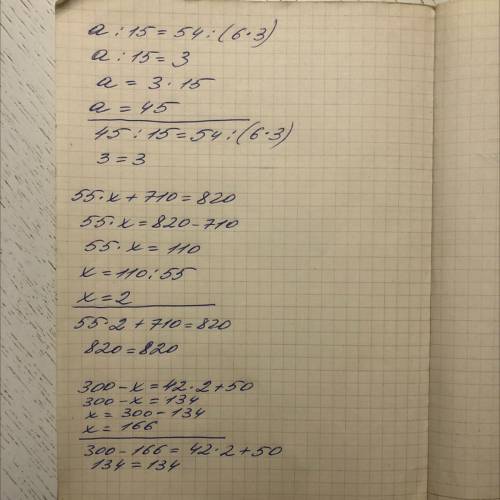 a : 15 = 54 : (6·3)
a : 15 = 3
a = 3 · 15
a = 45
45 : 15 = 54 : (6·3)
3 = 3
55·x + 710 = 820
55·x = 820 - 710
55·x = 110
x = 110 : 55
x = 2
55·2 + 710 = 820
820 = 820
300 - x = 42·2 + 50
300 - x = 134
x = 300 - 134
x = 166
300 - 166 = 42·2 + 50
134 = 134